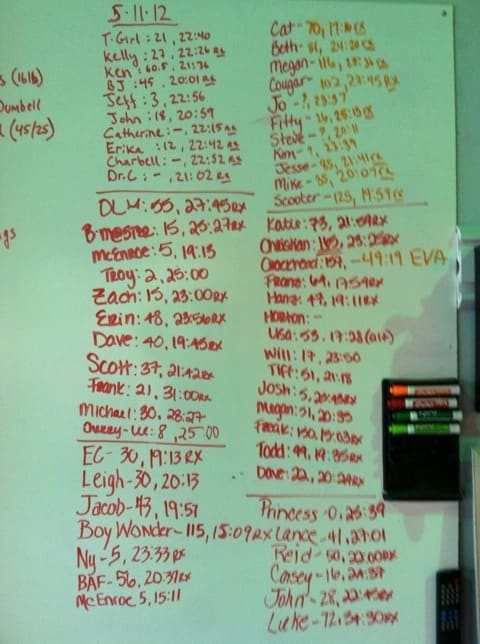 5·11·12
T-Girl : 21, 22:40
Kelly : 27, 22:26 Rx
Ken : 60.5, 21:36
BJ : 45, 20:01 Rx
Jeff : 3, 22:56
John : 18, 20:59
Catherine : -, 22:15 Rx
Erika : 12, 22:42 Rx
Charbell : -, 22:52 Rx
Dr.C : -, 21:02 Rx
s (1616)
Dumbell
(45/25)
gs
DLM : 55, 27:45 RX
15, 25:27 RX
McEnroe : 5, 19:13
Troy : 2, 25:00
Zach : 15, 23:00 RX
Erin : 48, 23:56 RX
Dave : 40, 19:45 RX
Scott : 37, 21:42 RX
Frank : 21, 31:00 RX
Michael : 30, 28:27
8, 25:00
EC - 30, 19:13 RX
Leigh - 30, 20:13
Jacob - 43, 19:57
Boy Wonder - 115, 15:09 RX
Ny - 5, 23:33 RX
BAF - 56, 20:37 RX
McEnroe 5, 15:11
Cat -
Beth -
Megan - 116,
Cougar - 102, 27:45 RX
Jo - ?, 23:57
Fitty -
Steve - ?, 20:11
Kim - ?, 23:39
Jesse - 21:41
Mike - 20:07
Scooter - 125, 19:59
Katie : 73, 21:59 RX
Christian : 165, 23:25 RX
-49:19 EVA
17:59 RX
Hanz : 47, 19:11 RX
Horton : -
Lisa : 53, 17:28
Will : 17, 23:50
Tiff : 51, 21:18
Josh : 5,
Megan : 51, 20:35
150, 15:03 RX
Todd : 99, 19:35 RX
Dave : 22, 20:29 RX
Princess - 0, 25:39
Lance - 41, 27:01
Reid - 50, 22:00 RX
Casey - 16, 24:37
John - 28, 22:45 RX
Luke - 72, 34:30 RX